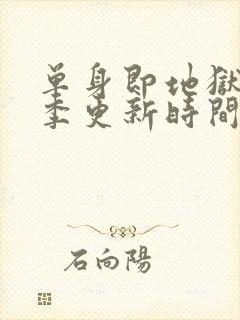 单身即地獄
季更新時間
石向陽